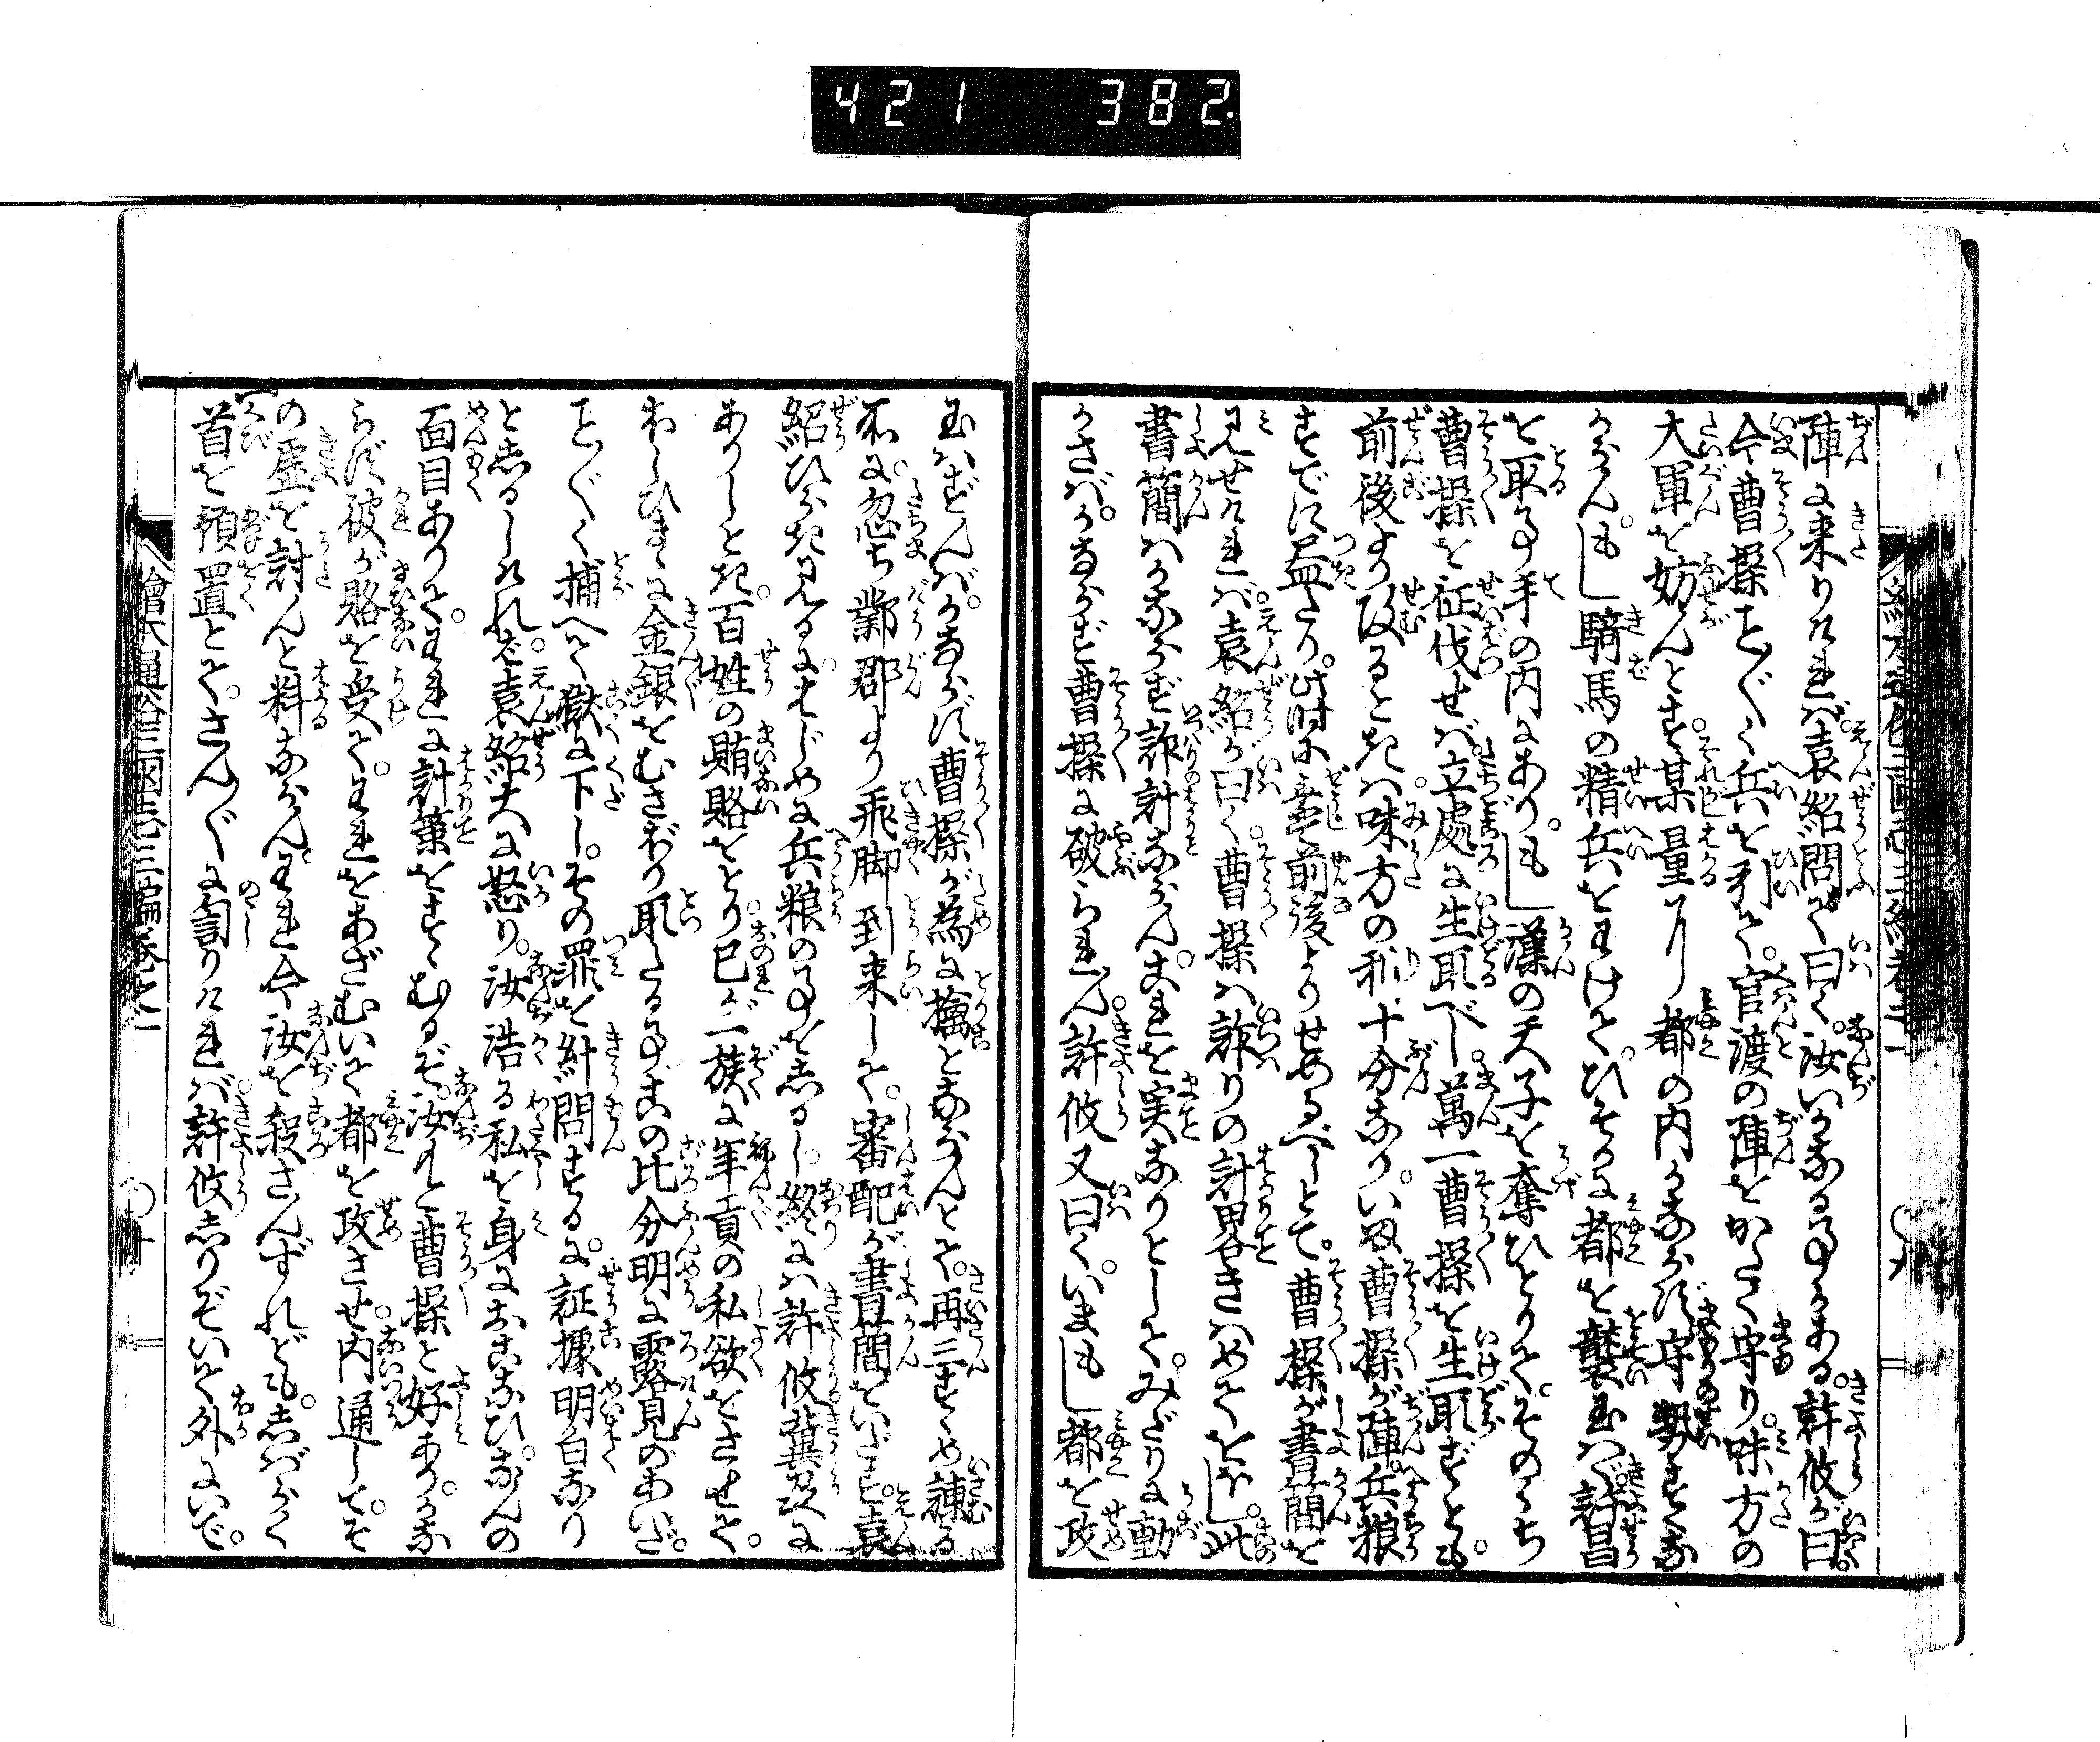 421 382
陣に来りければ。袁紹問て曰く。汝いかなる事かある。許攸が曰。
今曹操こと〴〵く兵を引て。官渡の陣をかたく守り。味方の
大軍を妨んとす。某量りに都の内かならず守勢すくな
からん。もし騎馬の精兵をわけて。ひそかに都を襲玉はゞ。許昌
を取事手の内にあり。もし漢の天子を奪ひとりて。そのゝち
曹操を征伐せば。立處に生取べし。萬一曹操を生取ずとも。
前後より攻るときは。味方の利十分なり。いま曹操が陣。兵粮
すでに盡たり。此時に乗じ前後よりせめるべしとて。曹操が書簡を
見せければ。袁紹が曰く。曹操は詐りの計畧きはめて多し。此
書簡はかならず詐計ならん。これを実なりとして。みだりに動
かさば。かならず曹操に破られん。許攸又曰く。いまもし都を攻
玉はずんば。かならず曹操が為に擒とならんとて。再三すゝめ諫る
所に。忽ち鄴郡より飛脚到来して。審配が書簡をいだす。袁
紹ひらき見るに。はじめに兵粮の事をしるし。終には許攸冀州に
ありしとき。百姓の賄賂をとり。己が一族に年貢の私欲をさせて。
おもひまゝに金銀をむさぼり取たる事。この比分明に露見のあいだ。
こと〴〵く捕へて獄に下し。その罪を糾問するに。証據明白なり
としるしければ。袁紹大に怒り。汝浩る私を身におこなひ。なんの
面目ありて。われに計策をすゝむるぞ。汝もと曹操と好あり。かな
らず彼が賂を受て。われをあざむいて都を攻させ。内通して。そ
の虚を討んと料ならん。われ今汝を殺さんずれども。しばらく
首を預置とて。さん〴〵に罵りければ。許攸しりぞいて外にいで。
繪本通俗三國志三編巻之一